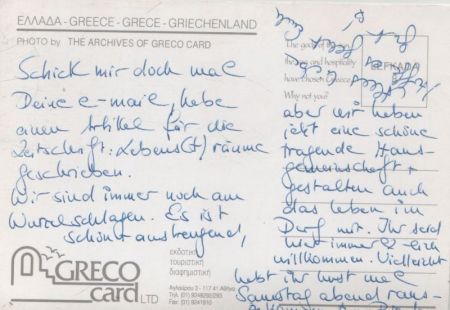 ΕΛΛΑΔΑ - GREECE - GRECE - GRIECHENLAND
PHOTO by THE ARCHIVES OF GRECO CARD
Schick mir doch mal
Deine e-mail, habe
einen Artikel für die
Zeitschrift: Lebens(t)räume
geschrieben.
Wir sind immer noch am
Wurzelschlagen. Es ist
schön anstrengend,
The gods of
and hospitality
have chosen Greece
Why not you?
LEFKADA
aber wir haben
jetzt eine schöne
tragende Haus-
gemeinschaft +
gestalten auch
das Leben im
Dorf mit. Ihr seid
hier immer
willkommen. Vielleicht
habt ihr Lust mal
Samstag abend raus-
GRECO
card LTD
εκδοτική
τουριστική
διαφημιστική
117 41 Αθήνα